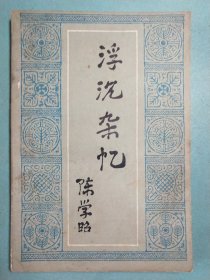 浮沉杂忆
陈学昭